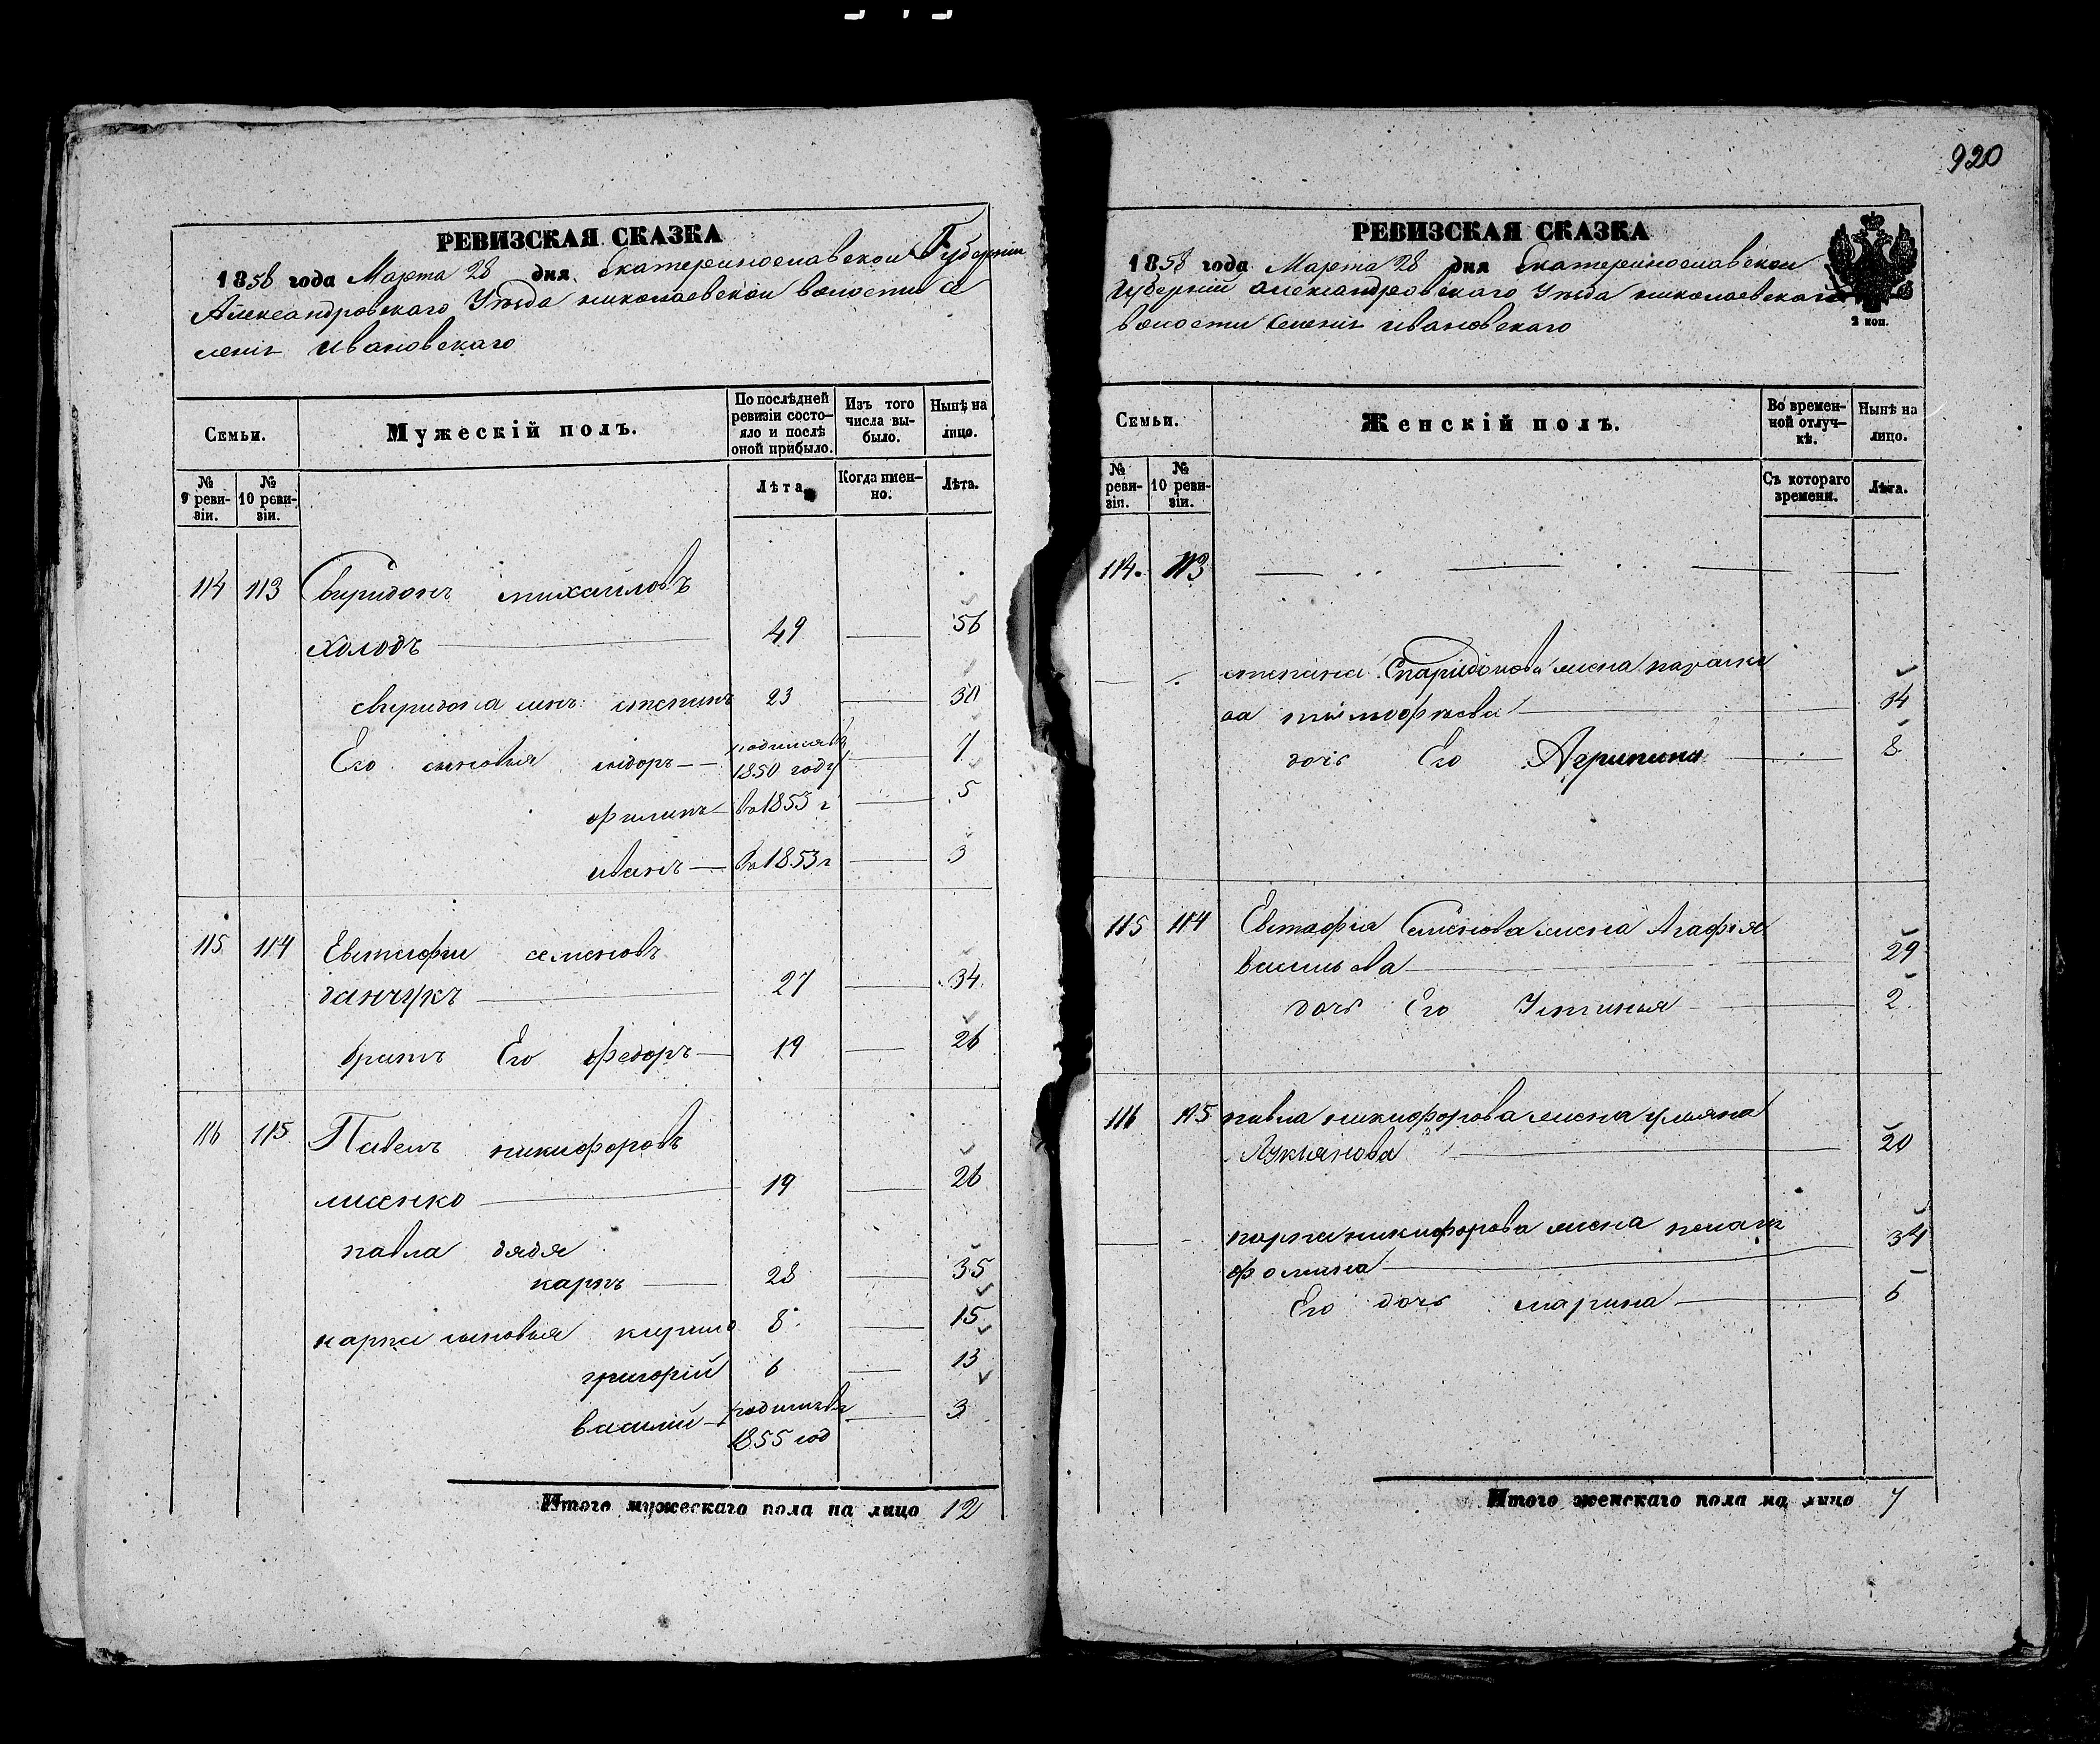 920
РЕВИЗСКАЯ СКАЗКА
1858 года Марта 28 дня Екатеринославской Губернии
Александровского Уезда николаевской волости се
ления ивановскаго
Семьи.
Мужескій полъ.
По послѣдней ревизіи состо-яло и послѣ оной прибыло.
Изъ того числа вы-было.
Нынѣ на лицо.
№ 9 реви-зіи.
№ 10 реви-зіи.
Лѣта
Когда имен-но.
Лѣта.
114 113 Свиридонъ михайловъ
холодъ 49 56
свиридона сынъ степанъ 23 30
Его сыновья сидоръ родился въ 1850 году 7
филипъ въ 1853 г 5
иванъ въ 1853 г 3
115 114 Евстафи семеновъ
данчукъ 27 34
братъ Его федоръ 19 26
116 115 Павелъ никифоровъ
лисенко 19 26
павла дядя
карпъ 28 35
карпа сыновья кирило 8 15
григорій 6 13
василий родился в 1855 год 3
Итого мужескаго пола на лицо 12
РЕВИЗСКАЯ СКАЗКА
1858 года Марта 28 дня Екатеринославской
Губернии александровскаго Уезда николаевскаго
волости селения ивановскаго
2 коп.
Семьи.
Женскій полъ.
Во времен-ной отлуч-кѣ.
Нынѣ на лицо.
№ реви-зіи.
№ 10 реви-зіи.
Съ котораго времени.
Лѣта.
114. 113
степана Спаридонова жена
ва тимофеева 34
дочь Его Агрипина 8
115 114 Евстафия Семенова жена Агафия
васильева 29
дочь Его Устинья 2
116 115 павла никифорова жена ульяна
Лукьянова 20
карпа никифорова жена
фомина 34
Его дочь марина 6
Итого женскаго пола на лицо 7